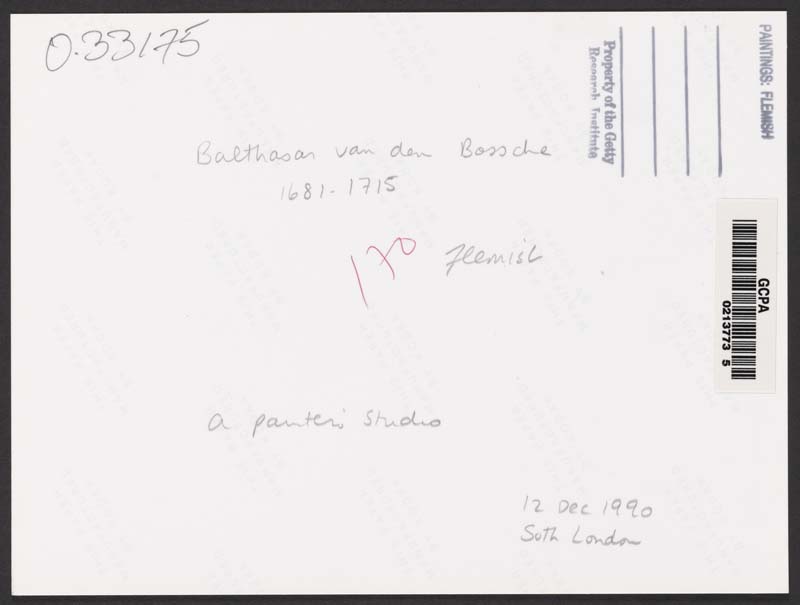 0.33175
PAINTINGS: FLEMISH
Property of the Getty
Research Institute
Balthasar van den Bossche
1681-1715
170
Flemish
GCPA
0213773 5
a painter's studio
12 Dec 1990
Soth London